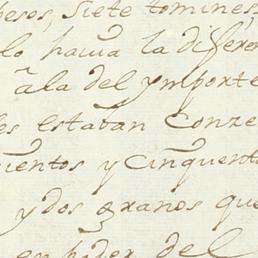 pesos, siete tomines,
lo hacia la diferen
a la del ymporte
es estaban Conze
cientos y Cinquent
y dos granos que
en poder del